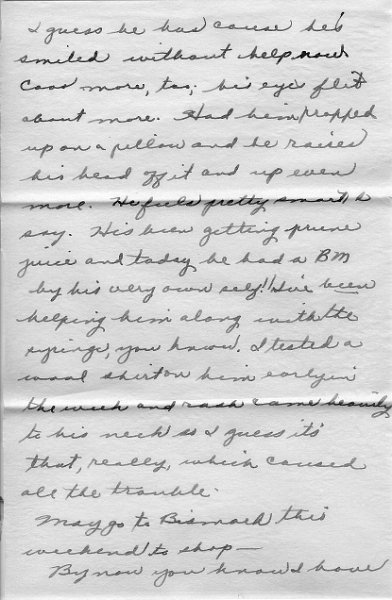 I guess he has cause he's
smiled without help now
Coos more, too; his eyes flit
about more. Had him propped
up on a pillow and he raises
his head off it and up even
more. He feels pretty smart, I'd
say. He's been getting prune
juice and today he had a BM
by his very own self!! I've been
helping him along with the
syringe, you know. I tested a
wool shirt on him early in
the week and rash came heavily
to his neck so I guess it's
that, really, which caused
all the trouble.
May go to Bismarck this
weekend to shop—
By now you know I have